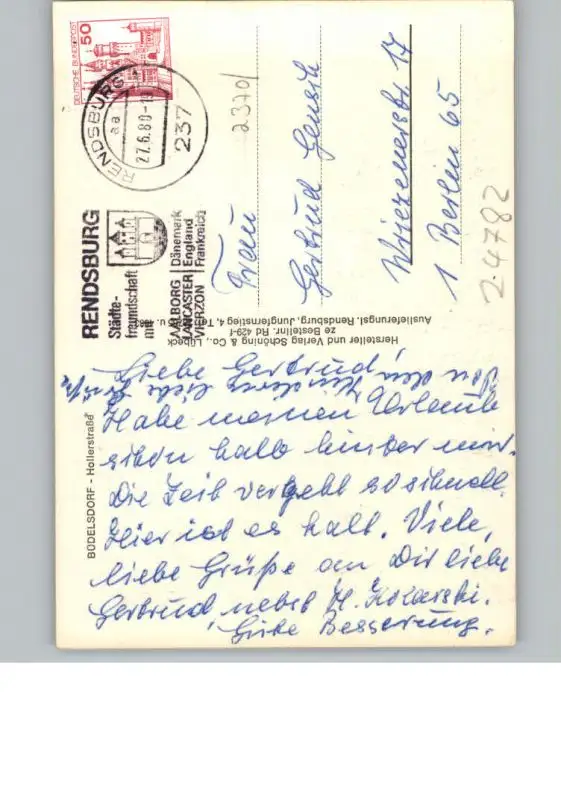 DEUTSCHE BUNDESPOST
50
RENDSBURG
aa
27.6.80-1
237
RENDSBURG
Städte-
freundschaft
mit
AALBORG Dänemark
LANCASTER England
VIERZON Frankreich
2370/
Frau
Gertrud Gensch
Wriezenerstr. 17
1 Berlin 65
2-4782
Hersteller und Verlag Schöning & Co., Lübeck
ze Bestellnr. Rd 429-f
Auslieferungsl. Rendsburg, Jungfernstieg 4, Tel.
BÜDELSDORF - Hollerstraße
Liebe Gertrud,
Von den Kindern liebe Grüße
Habe meinen Urlaub
schon halb hinter mir.
Die Zeit vergeht so schnell.
Hier ist es kalt. Viele,
liebe Grüße an Dir liebe
Gertrud, nebst H.
Gute Besserung.